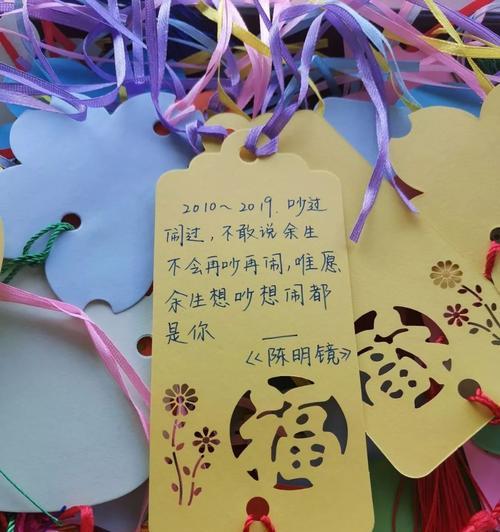 2010~2019. 吵过
闹过, 不敢说余生
不会再吵再闹, 唯愿
余生想吵想闹都
是你 ——
《陈明镜》
福